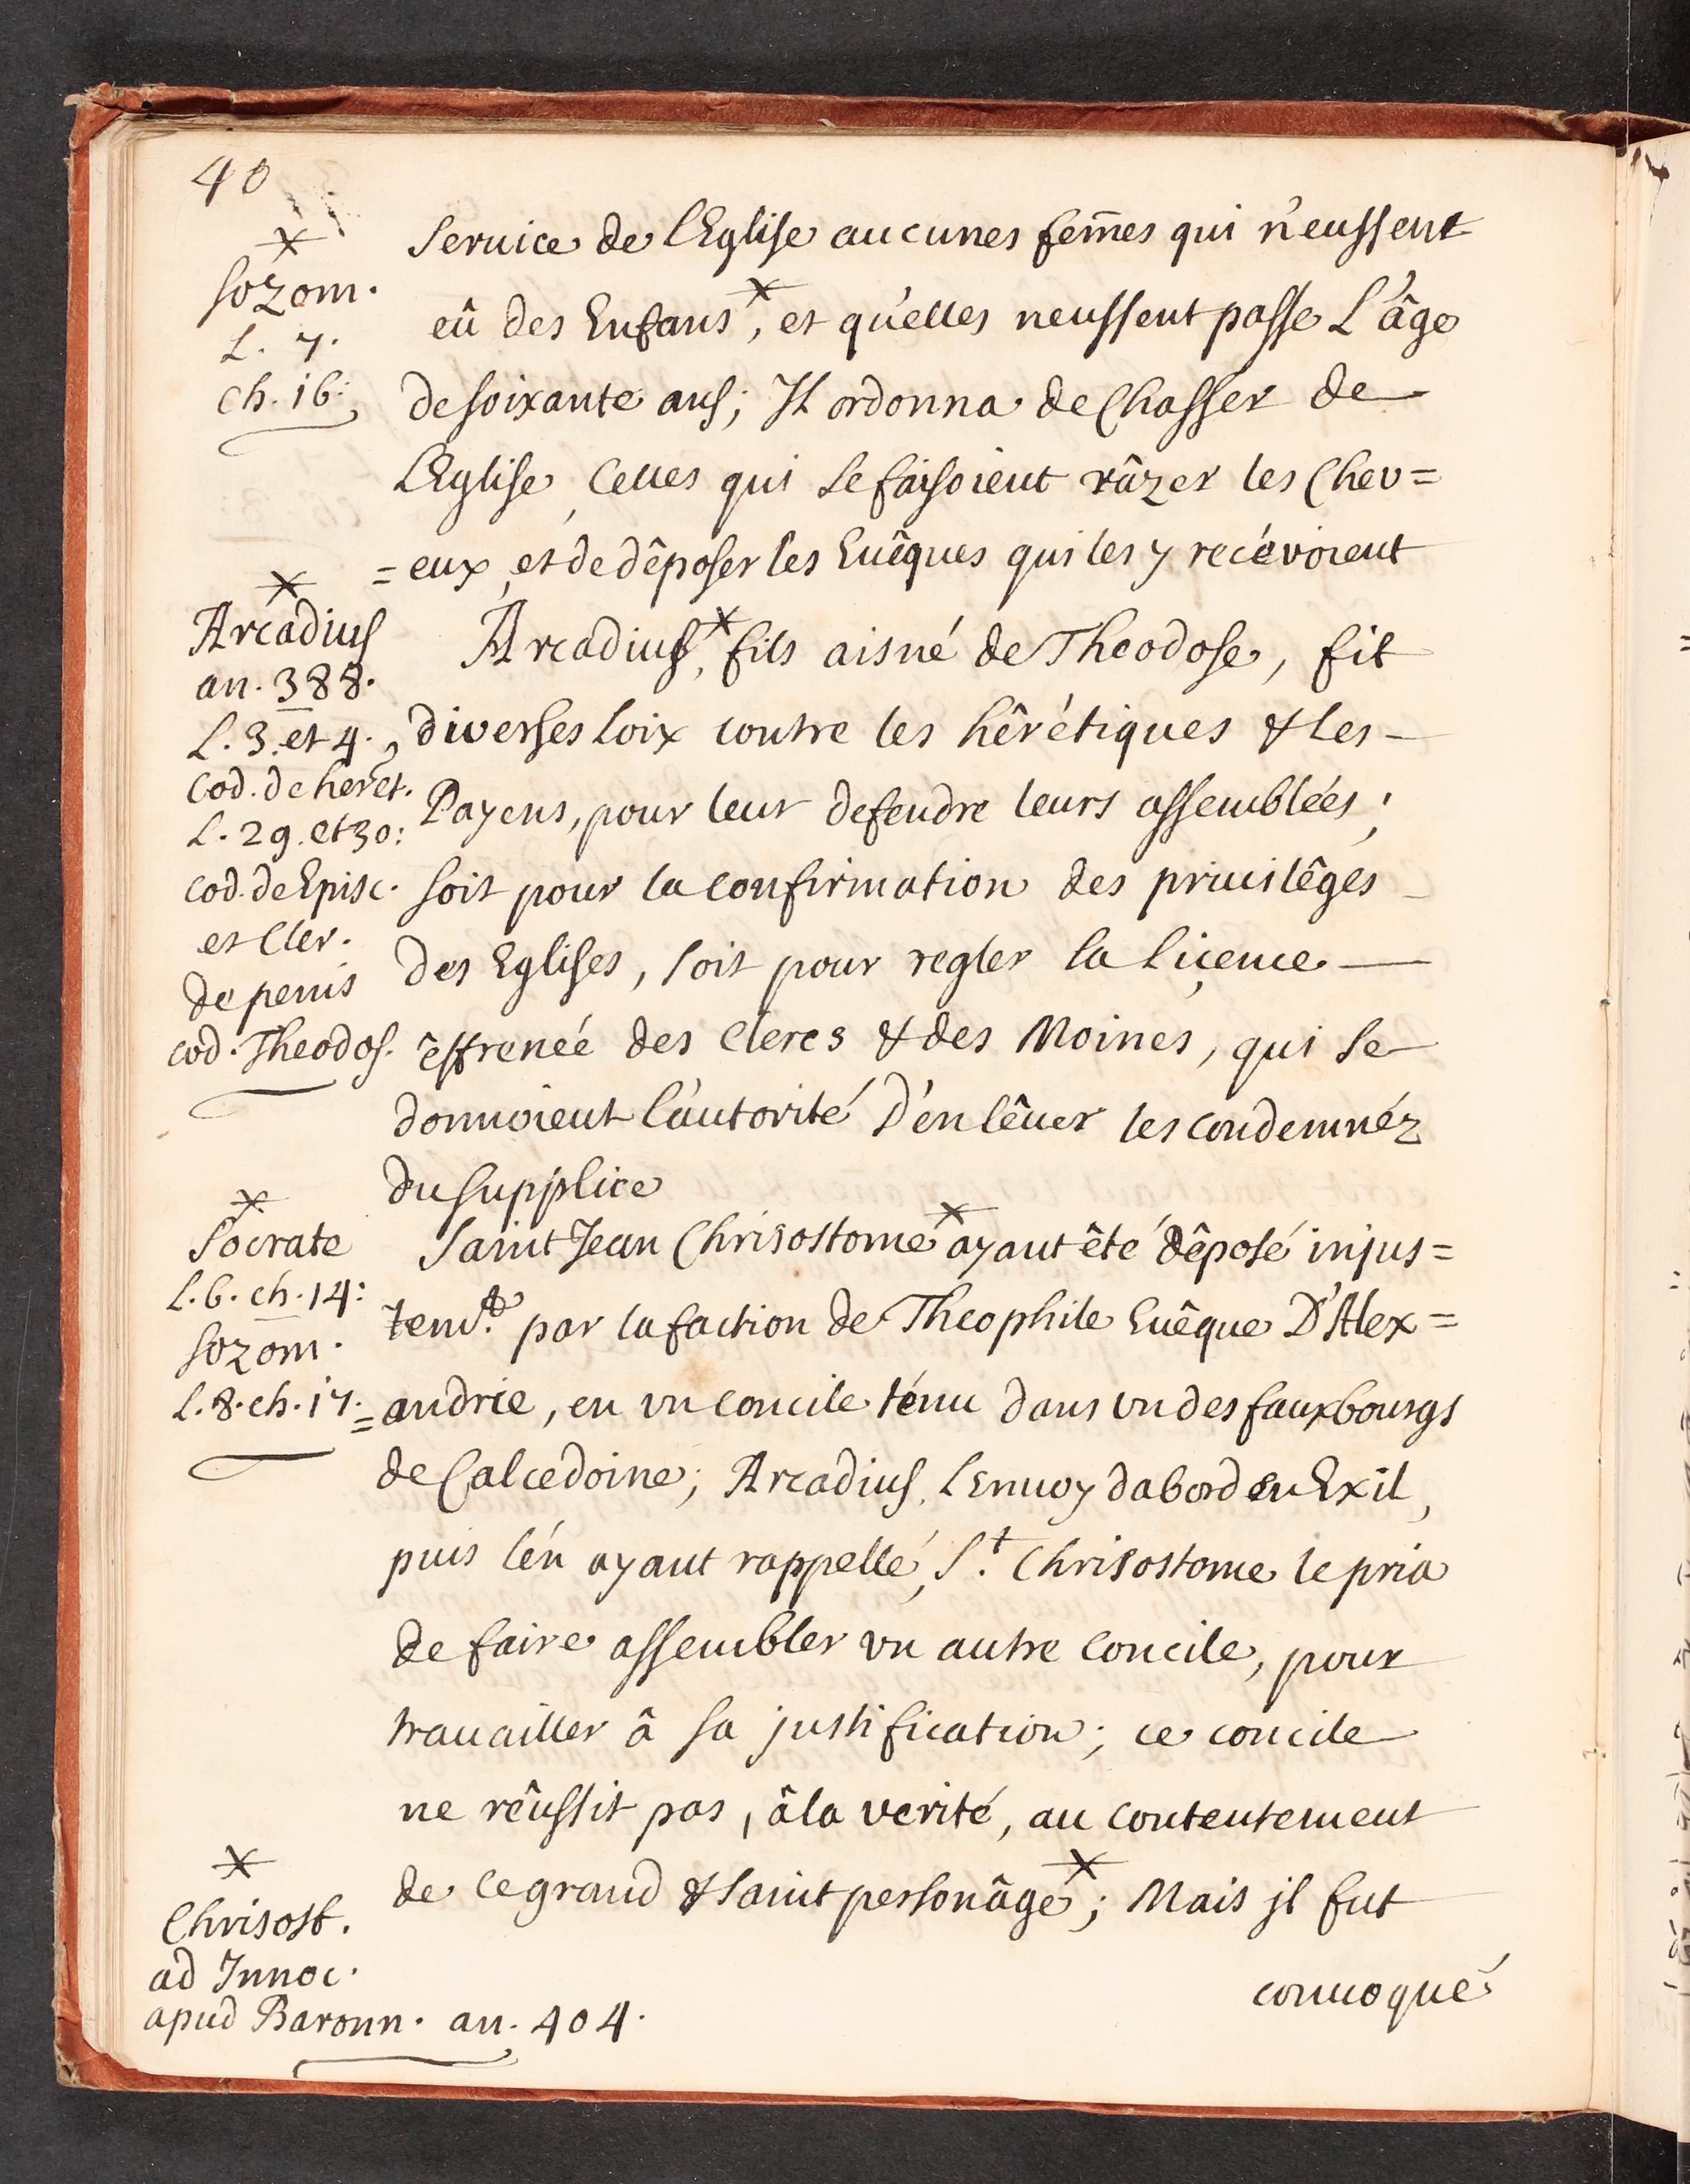 40
service de l'Eglise aucunes fem̃es qui n'eussent
eû des Enfans*, et qu'elles neussent passe L'âge
de soixante ans; Il ordonna de Chasser de
L'Eglise, Celles qui se faisoient râzer les Chev=
=eux, et de dêposer les Euêques qui les y recévoient
Arcadius*, fils aisné de Theodose, fit
diverses loix contre les hêrétiques & les
Payens, pour leur defendre leurs assemblées;
soit pour la confirmation des priuilêges
des Eglises, soit pour regler la licence
êffrenée des Clercs & des Moines, qui se
donnoient l'autorité D'enlêuer les condemnéz
du supplice
Saint Jean Chrisostome* ayant êté dêposé injus=
tem.t par la faction de Theophile Euêque D'Alex=
=andrie, en vn concile ténu dans vn des fauxbourgs
de Calcedoine; Arcadius, L'enuoy dabord en Exil,
puis l'én ayant rappellé, S.t Chrisostome le pria
de faire assembler vn autre Concile, pour
trauailler â sa justification; ce concile
ne rêussit pas, â la verité, au contentement
de ce grand & saint personâge*; Mais jl fut
conuoqué
*
Sozom.
L. 7.
ch. 16:
*
Arcadius
an. 388.
L. 3. et 4.,
Cod. de heret.
L. 29. et 30:
Cod. de Episc.
et Cler.
de penis
cod. Theodos.
*
Socrate
L. 6. ch. 14:
Sozom.
L. 8. ch. 17.
*
Chrisost.
ad Innoc.
apud Baronn. an. 404.